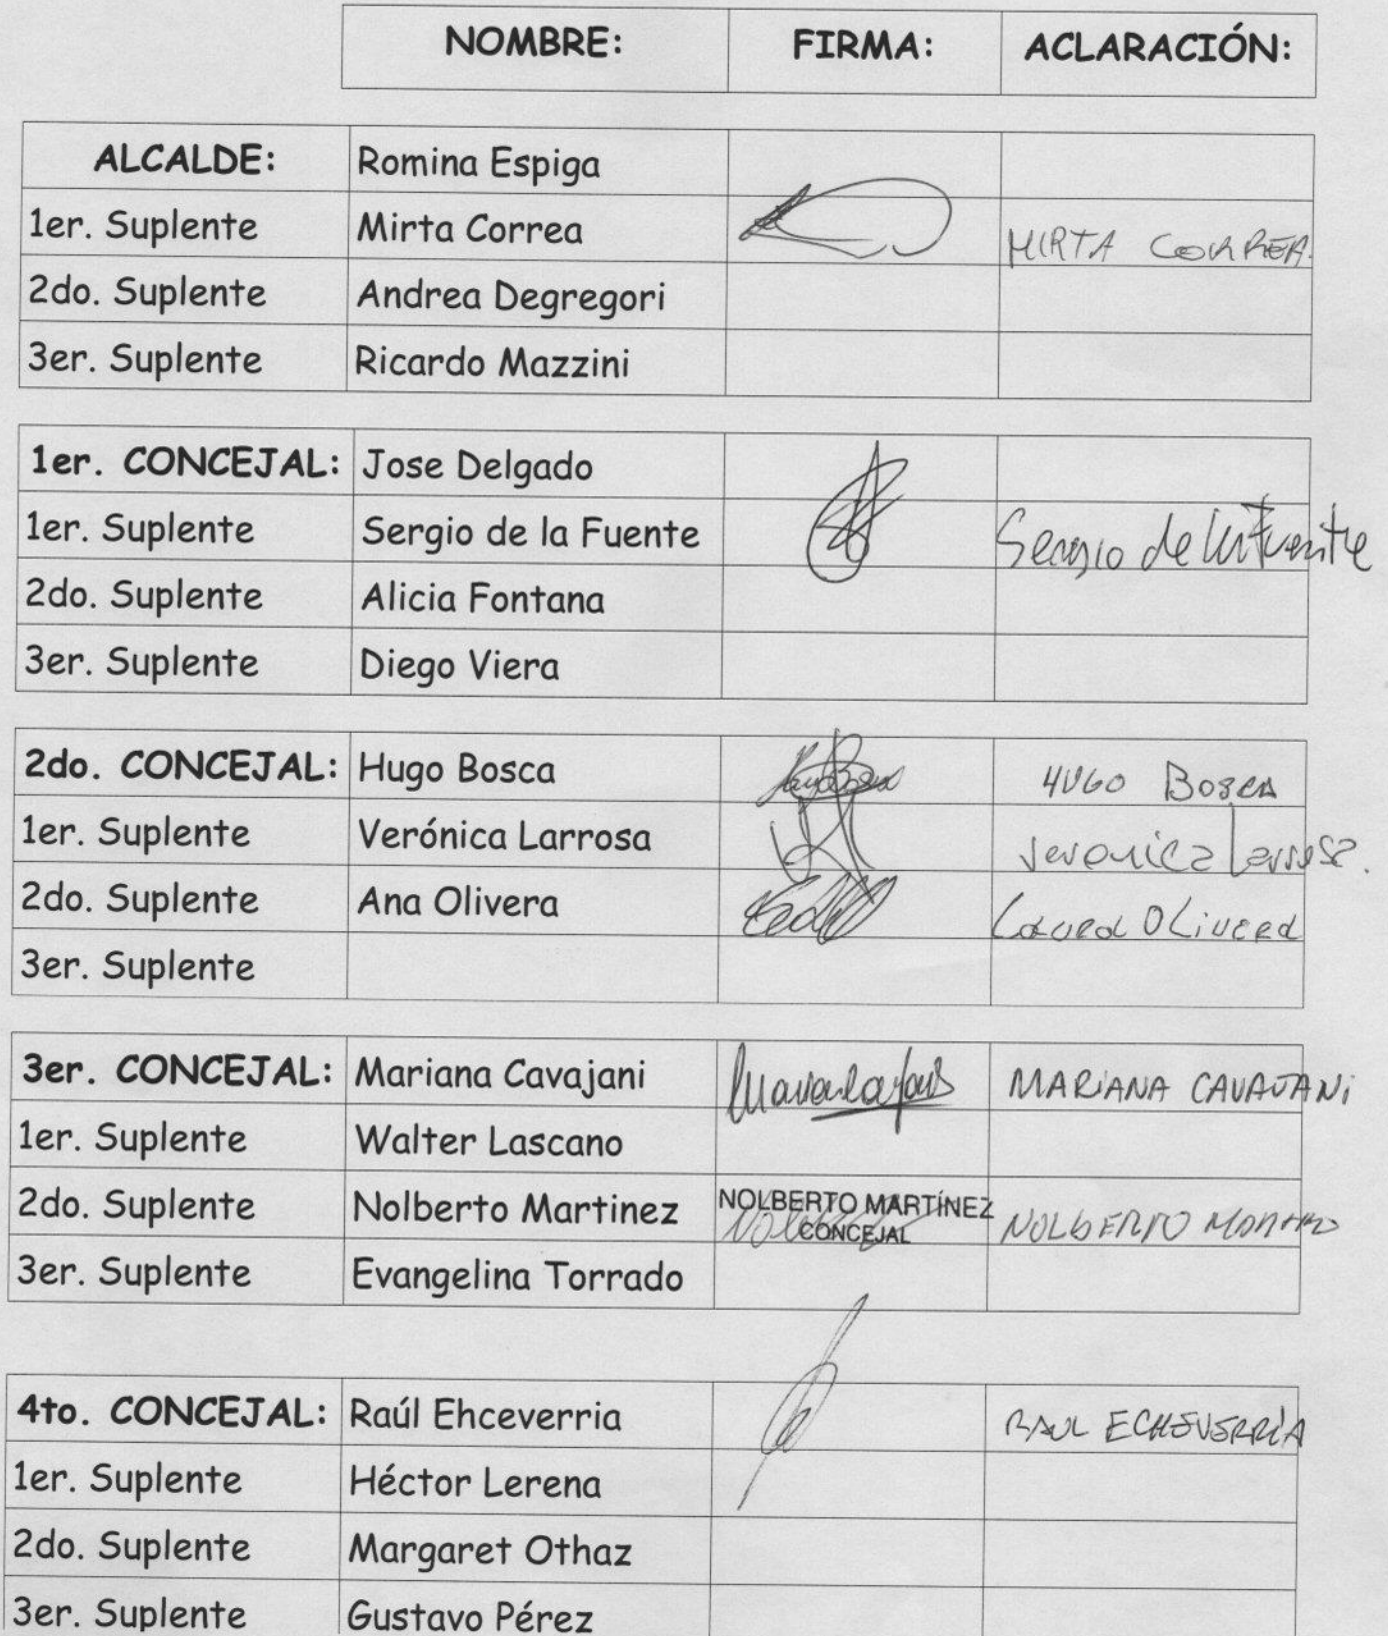 NOMBRE: FIRMA: ACLARACIÓN:
ALCALDE: Romina Espiga
1er. Suplente Mirta Correa MIRTA CORREA.
2do. Suplente Andrea Degregori
3er. Suplente Ricardo Mazzini
1er. CONCEJAL: Jose Delgado
1er. Suplente Sergio de la Fuente Sergio de la Fuente
2do. Suplente Alicia Fontana
3er. Suplente Diego Viera
2do. CONCEJAL: Hugo Bosca HUGO BOSCA
1er. Suplente Verónica Larrosa Veronica Larrosa.
2do. Suplente Ana Olivera Laura OLivera
3er. Suplente
3er. CONCEJAL: Mariana Cavajani MARiANA CAVAJANi
1er. Suplente Walter Lascano
2do. Suplente Nolberto Martinez NOLBERTO MARTÍNEZ NOLBERTO
CONCEJAL
3er. Suplente Evangelina Torrado
4to. CONCEJAL: Raúl Ehceverria RAUL ECHEVERRÍA
1er. Suplente Héctor Lerena
2do. Suplente Margaret Othaz
3er. Suplente Gustavo Pérez